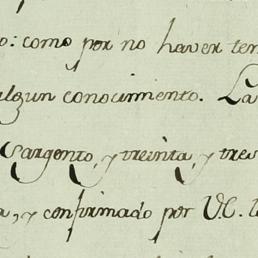 o: como por no haver ten
algun conocimiento. La
Sargento, y treinta, y tres
a, y confirmado por V.C. l